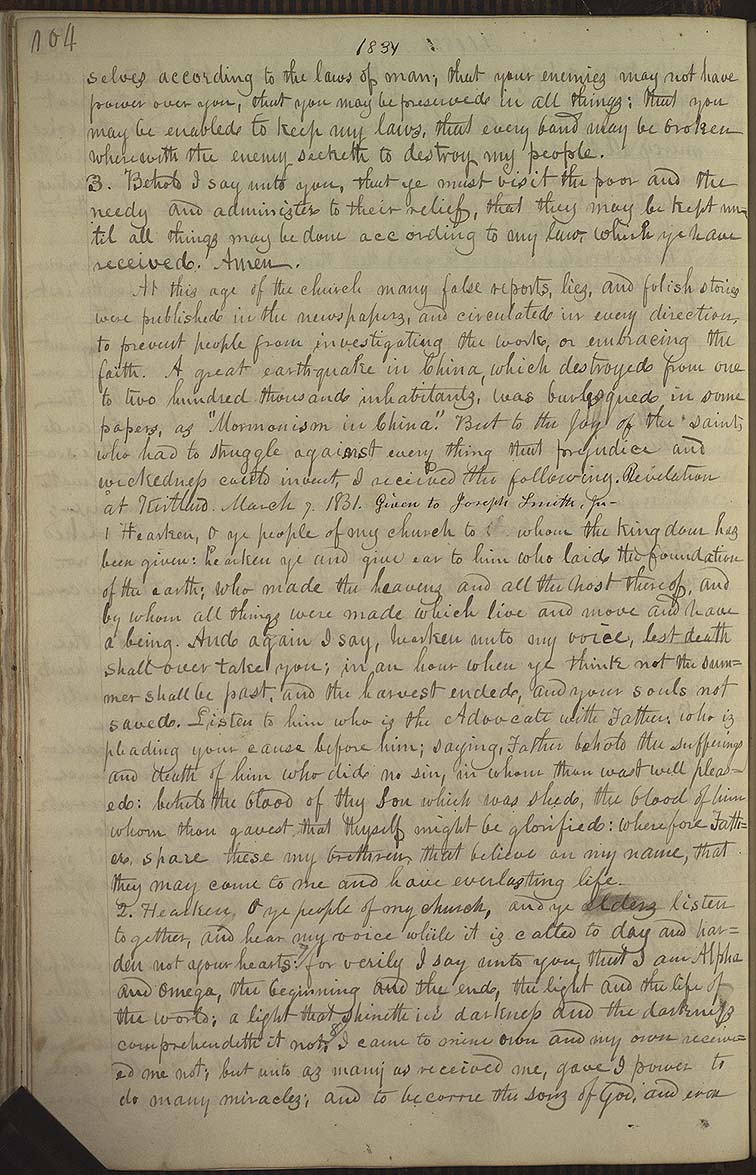 104
1834
selves according to the laws of man; that your enemies may not have
power over you, that you may be preserved in all things; that you
may be enabled to keep my laws, that every band may be broken
wherewith the enemy seeketh to destroy my people.
3. Behold I say unto you, that ye must visit the poor and the
needy and administer to their relief, that they may be kept un-
til all things may be done according to my law, which ye have
received. Amen.
At this age of the church many false reports, lies, and folish stories
were published in the newspapers, and circulated in every direction,
to prevent people from investigating the work, or embracing the
faith. A great earthquake in China, which destroyed from one
to two hundred thousand inhabitants, was burlesqued in some
papers, as "Mormonism in China". But to the Joy of the saints
who had to struggle against every thing that prejudice and
wickedness could invent, I received the following. Revelation
at Kirtland. March 7. 1831. Given to Joseph Smith, Jr-
1 Hearken, O ye people of my church to whom the kingdom has
been given: hearken ye and give ear to him who laid the foundation
of the earth; who made the heavens and all the host thereof, and
by whom all things were made which live and move and have
a being. And again I say, hearken unto my voice, lest death
shall over take you; in an hour when ye think not the sum=
mer shall be past, and the harvest ended, and your souls not
saved. Listen to him who is the Advocate with Father, who is
pleading your cause before him; saying, Father behold the sufferings
and death of him who did no sin, in whom thou wast well pleas=
ed: behold the blood of thy Son which was shed, the blood of him
whom thou gavest that thyself might be glorified: wherefore Fath=
er, spare these my brethren, that believe on my name, that
they may come to me and have everlasting life.
2. Hearken, O ye people of my church, and ye elders listen
together, and hear my voice while it is called to day and har=
den not your hearts: 7/ for verily I say unto you, that I am Alpha
and Omega, the beginning and the end, the light and the life of
the world; a light that shineth in darkness and the darkness
comprehendeth it not; 8/ I came to mine own and my own receiv=
ed me not; but unto as many as received me, gave I power to
do many miracles; and to become the sons of God, and even